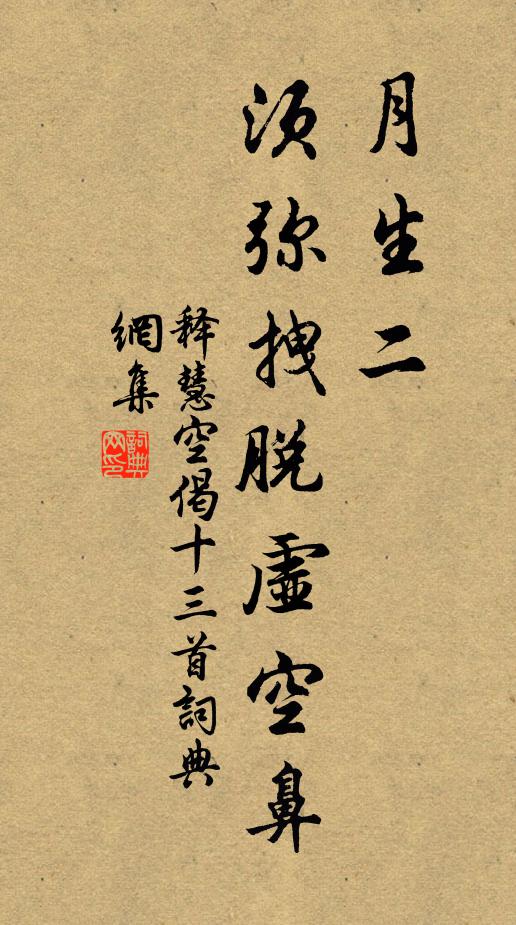 月生二
須弥拽脱虚空鼻
释慧空偈十三首詞典
網集
詞典
网印